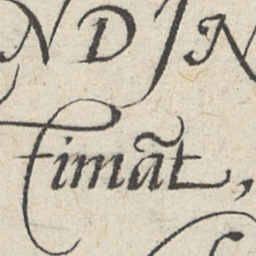 NDIN
timãt,